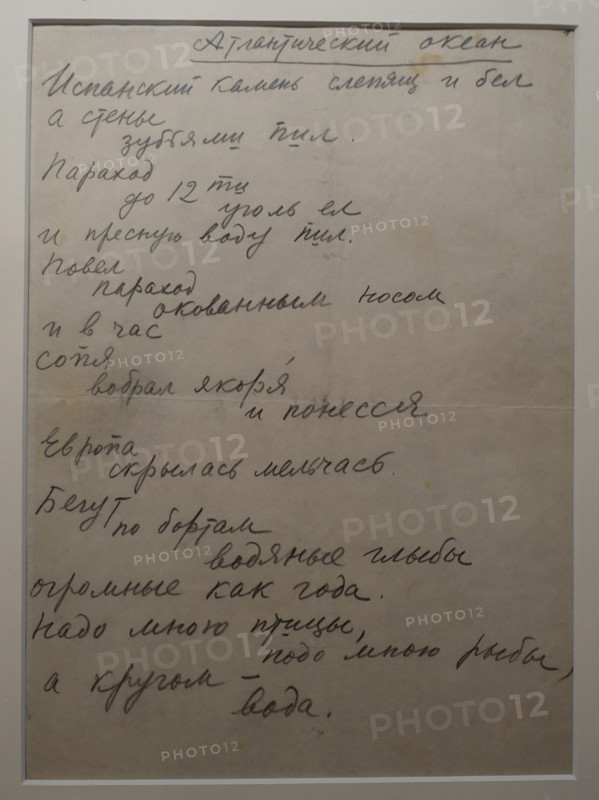 Атлантический океан
Испанский камень слепящ и бел
а стены
зубьями пил.
Пароход
до 12 ти
уголь ел
и пресную воду пил.
Повел
пароход
окованным носом
и в час
сопя
вобрал якоря́
и понесся
Европа
скрылась мельчась.
Бегут
по бортам
водяные глыбы
огромные как года.
Надо мною птицы,
подо мною рыбы,
а кругом –
вода.
PHOTO12